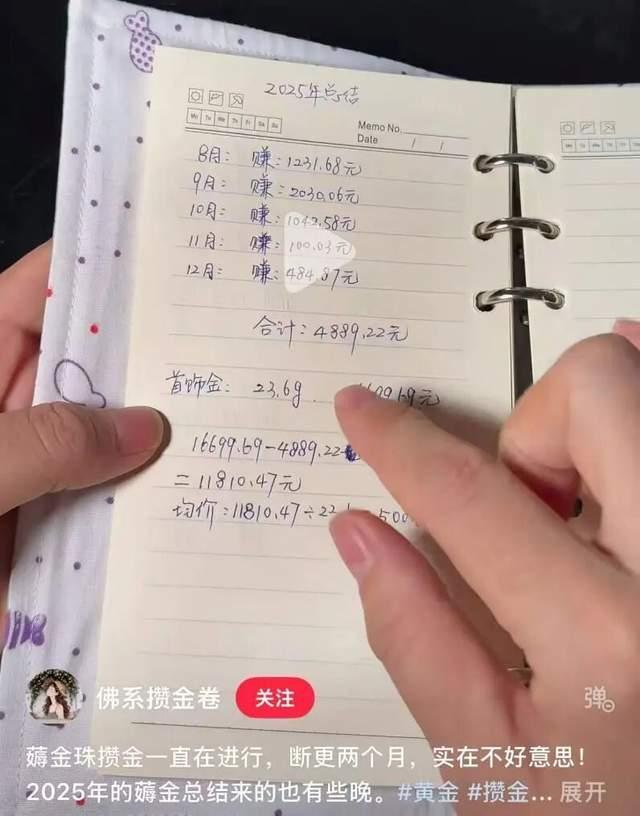 2025年总结
Mo Tu We Th Fr Sa Su
Memo No.
Date / /
8月： 赚：1231.68元
9月： 赚：2030.06元
10月： 赚：1042.58元
11月： 赚：100.03元
12月： 赚：484.87元
合计：4889.22元
首饰金： 23.6g. 699.69元
16699.69-4889.22
=11810.47元
均价：11810.47÷2 500
佛系攒金卷
关注
弹
薅金珠攒金一直在进行，断更两个月，实在不好意思！
2025年的薅金总结来的也有些晚。#黄金 #攒金... 展开